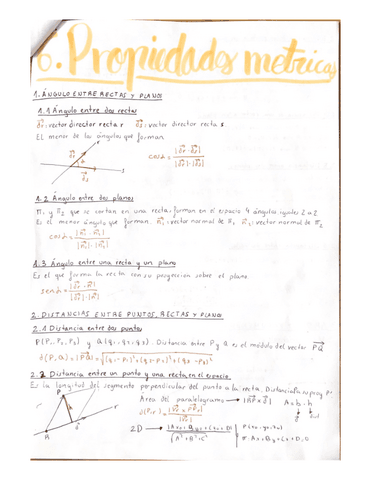 6. Propiedades metricas
1. ÁNGULO ENTRE RECTAS Y PLANOS
1.1 Ángulo entre dos rectas
d⃗r: vector director recta r d⃗s: vector director recta s
El menor de los ángulos que forman.
r
d⃗r
cos α = |d⃗r · d⃗s| / |d⃗r|·|d⃗s|
d⃗s
s
1.2 Angulo entre dos planos
π₁ y π₂ que se cortan en una recta, forman en el espacio 4 ángulos iguales 2 a 2
Es el menor ángulo que forman. n⃗₁: vector normal de π₁ n⃗₂: vector normal de π₂
cos α = |n⃗₁ · n⃗₂| / |n⃗₁|·|n⃗₂|
1.3 Ángulo entre una recta y un plano
Es el que forma la recta con su proyección sobre el plano.
sen α =
2. DISTANCIAS ENTRE PUNTOS, RECTAS Y PLANOS
2.1 Distancia entre dos puntos
P(P₁, P₂, P₃) y Q(q₁, q₂, q₃). Distancia entre P y Q es el módulo del vector P⃗Q
d(P,Q) = |P⃗Q| = √(q₁-p₁)²+(q₂-p₂)²+(q₃-p₃)²
2.2 Distancia entre un punto y una recta, en el espacio.
Es la longitud del segmento perpendicular del punto a la recta.
P
Área del paralelogramo → A = b · h
r
d(P,r) =
2D → |Ax₀ + By₀ + C| / √A² + B²